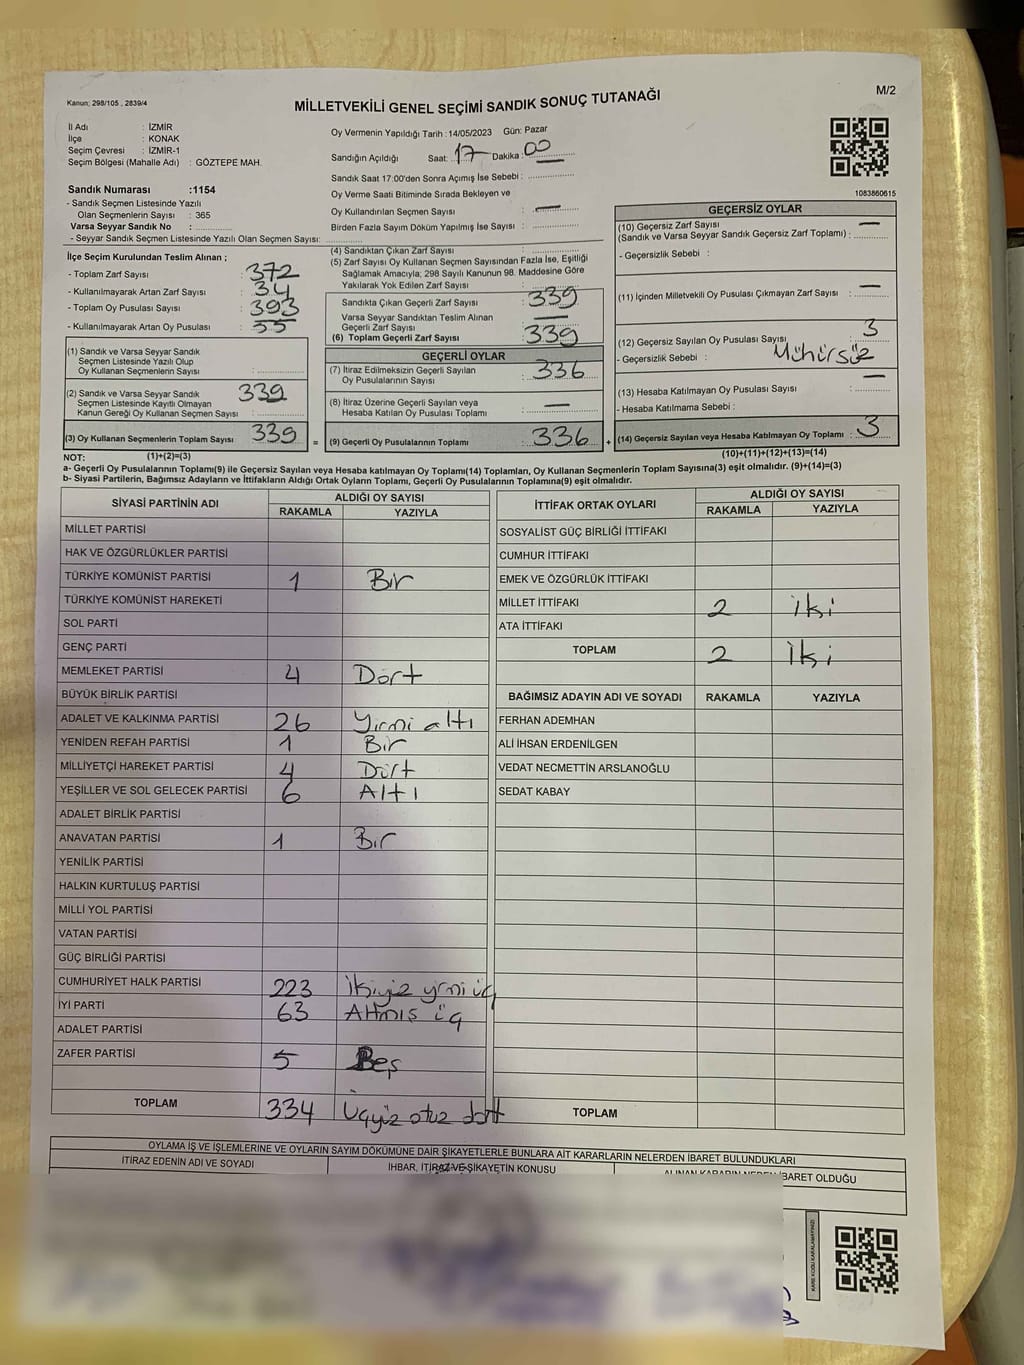 Kanun; 298/105 , 2839/4
MİLLETVEKİLİ GENEL SEÇİMİ SANDIK SONUÇ TUTANAĞI
M/2
İl Adı : İZMİR
İlçe : KONAK
Seçim Çevresi : İZMİR-1
Seçim Bölgesi (Mahalle Adı) : GÖZTEPE MAH.
Sandık Numarası :1154
- Sandık Seçmen Listesinde Yazılı
Olan Seçmenlerin Sayısı : 365
Varsa Seyyar Sandık No :
- Seyyar Sandık Seçmen Listesinde Yazılı Olan Seçmen Sayısı:
Oy Vermenin Yapıldığı Tarih : 14/05/2023 Gün: Pazar
Sandığın Açıldığı Saat: 17 Dakika : 00
Sandık Saat 17:00'den Sonra Açımış İse Sebebi :
Oy Verme Saati Bitiminde Sırada Bekleyen ve
Oy Kullandırılan Seçmen Sayısı : —
Birden Fazla Sayım Döküm Yapılmış İse Sayısı :
1083860615
İlçe Seçim Kurulundan Teslim Alınan ;
- Toplam Zarf Sayısı : 372
- Kullanılmayarak Artan Zarf Sayısı : 34
- Toplam Oy Pusulası Sayısı : 393
- Kullanılmayarak Artan Oy Pusulası : 55
(1) Sandık ve Varsa Seyyar Sandık
Seçmen Listesinde Yazılı Olup
Oy Kullanan Seçmenlerin Sayısı :
(2) Sandık ve Varsa Seyyar Sandık
Seçmen Listesinde Kayıtlı Olmayan
Kanun Gereği Oy Kullanan Seçmen Sayısı : 339
(3) Oy Kullanan Seçmenlerin Toplam Sayısı : 339
(4) Sandıktan Çıkan Zarf Sayısı :
(5) Zarf Sayısı Oy Kullanan Seçmen Sayısından Fazla İse, Eşitliği
Sağlamak Amacıyla; 298 Sayılı Kanunun 98. Maddesine Göre
Yakılarak Yok Edilen Zarf Sayısı :
Sandıkta Çıkan Geçerli Zarf Sayısı : 339
Varsa Seyyar Sandıktan Teslim Alınan
Geçerli Zarf Sayısı : —
(6) Toplam Geçerli Zarf Sayısı : 339
GEÇERLİ OYLAR
(7) İtiraz Edilmeksizin Geçerli Sayılan
Oy Pusulalarının Sayısı : 336
(8) İtiraz Üzerine Geçerli Sayılan veya
Hesaba Katılan Oy Pusulası Toplamı : —
= (9) Geçerli Oy Pusulalarının Toplamı : 336
GEÇERSİZ OYLAR
(10) Geçersiz Zarf Sayısı —
(Sandık ve Varsa Seyyar Sandık Geçersiz Zarf Toplamı) :
- Geçersizlik Sebebi :
(11) İçinden Milletvekili Oy Pusulası Çıkmayan Zarf Sayısı : —
(12) Geçersiz Sayılan Oy Pusulası Sayısı : 3
- Geçersizlik Sebebi : Mühürsüz
(13) Hesaba Katılmayan Oy Pusulası Sayısı : —
- Hesaba Katılmama Sebebi :
+ (14) Geçersiz Sayılan veya Hesaba Katılmayan Oy Toplamı : 3
NOT: (1)+(2)=(3)
(10)+(11)+(12)+(13)=(14)
a- Geçerli Oy Pusulalarının Toplamı(9) ile Geçersiz Sayılan veya Hesaba katılmayan Oy Toplamı(14) Toplamları, Oy Kullanan Seçmenlerin Toplam Sayısına(3) eşit olmalıdır. (9)+(14)=(3)
b- Siyasi Partilerin, Bağımsız Adayların ve İttifakların Aldığı Ortak Oyların Toplamı, Geçerli Oy Pusulalarının Toplamına(9) eşit olmalıdır.
SİYASİ PARTİNİN ADI
ALDIĞI OY SAYISI
RAKAMLA YAZIYLA
MİLLET PARTİSİ
HAK VE ÖZGÜRLÜKLER PARTİSİ
TÜRKİYE KOMÜNİST PARTİSİ 1 Bir
TÜRKİYE KOMÜNİST HAREKETİ
SOL PARTİ
GENÇ PARTİ
MEMLEKET PARTİSİ 4 Dört
BÜYÜK BİRLİK PARTİSİ
ADALET VE KALKINMA PARTİSİ 26 Yirmi altı
YENİDEN REFAH PARTİSİ 1 Bir
MİLLİYETÇİ HAREKET PARTİSİ 4 Dört
YEŞİLLER VE SOL GELECEK PARTİSİ 6 Altı
ADALET BİRLİK PARTİSİ
ANAVATAN PARTİSİ 1 Bir
YENİLİK PARTİSİ
HALKIN KURTULUŞ PARTİSİ
MİLLİ YOL PARTİSİ
VATAN PARTİSİ
GÜÇ BİRLİĞİ PARTİSİ
CUMHURİYET HALK PARTİSİ 223 İkiyüz yrmi üç
İYİ PARTİ 63 Altmış üç
ADALET PARTİSİ
ZAFER PARTİSİ 5 Beş
TOPLAM 334 Üçyüz otuz dört
İTTİFAK ORTAK OYLARI
ALDIĞI OY SAYISI
RAKAMLA YAZIYLA
SOSYALİST GÜÇ BİRLİĞİ İTTİFAKI
CUMHUR İTTİFAKI
EMEK VE ÖZGÜRLÜK İTTİFAKI
MİLLET İTTİFAKI 2 iki
ATA İTTİFAKI
TOPLAM 2 İki
BAĞIMSIZ ADAYIN ADI VE SOYADI RAKAMLA YAZIYLA
FERHAN ADEMHAN
ALİ İHSAN ERDENİLGEN
VEDAT NECMETTİN ARSLANOĞLU
SEDAT KABAY
TOPLAM
OYLAMA İŞ VE İŞLEMLERİNE VE OYLARIN SAYIM DÖKÜMÜNE DAİR ŞİKAYETLERLE BUNLARA AİT KARARLARIN NELERDEN İBARET BULUNDUKLARI
İTİRAZ EDENİN ADI VE SOYADI
İHBAR, İTİRAZ VE ŞİKAYETİN KONUSU
ALINAN KARARIN NEDEN İBARET OLDUĞU